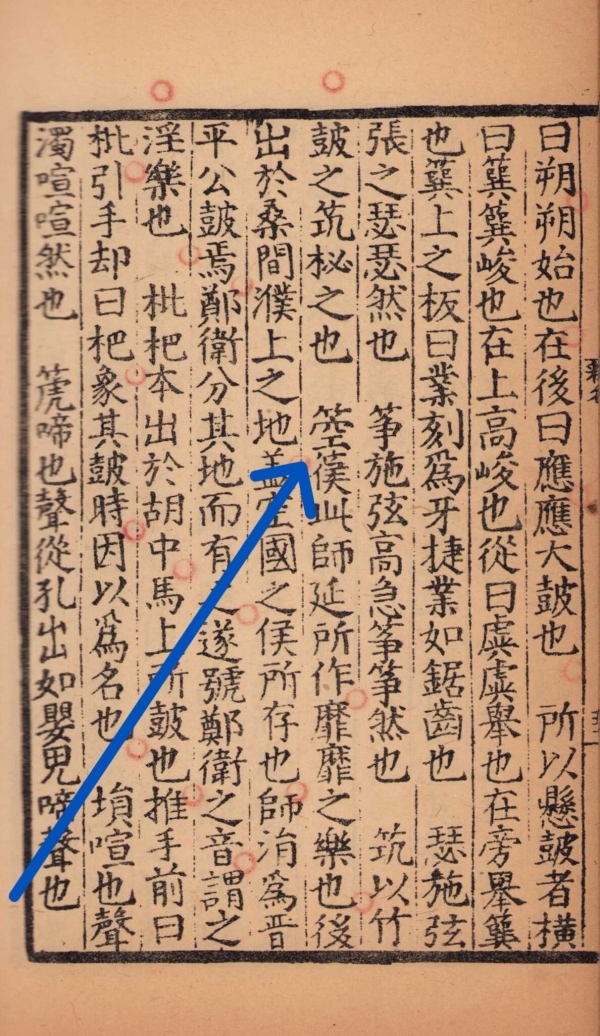 曰朔朔始也在後曰應應大鼓也　所以懸鼓者橫
曰簨簨峻也在上高峻也從曰虡虡舉也在旁舉簨
也簨上之板曰業刻爲牙捷業如鋸齒也　瑟施弦
張之瑟瑟然也　筝施弦高急筝筝然也　筑以竹
鼓之筑柲之也　箜篌此師延所作靡靡之樂也後
出於桑間濮上之地蓋空國之侯所存也師涓爲晋
平公鼓焉鄭衛分其地而有之遂號鄭衛之音謂之
淫樂也　枇杷本出於胡中馬上所鼓也推手前曰
枇引手却曰杷象其鼓時因以爲名也　塤喧也聲
濁喧喧然也　箎啼也聲從孔出如嬰兒啼聲也